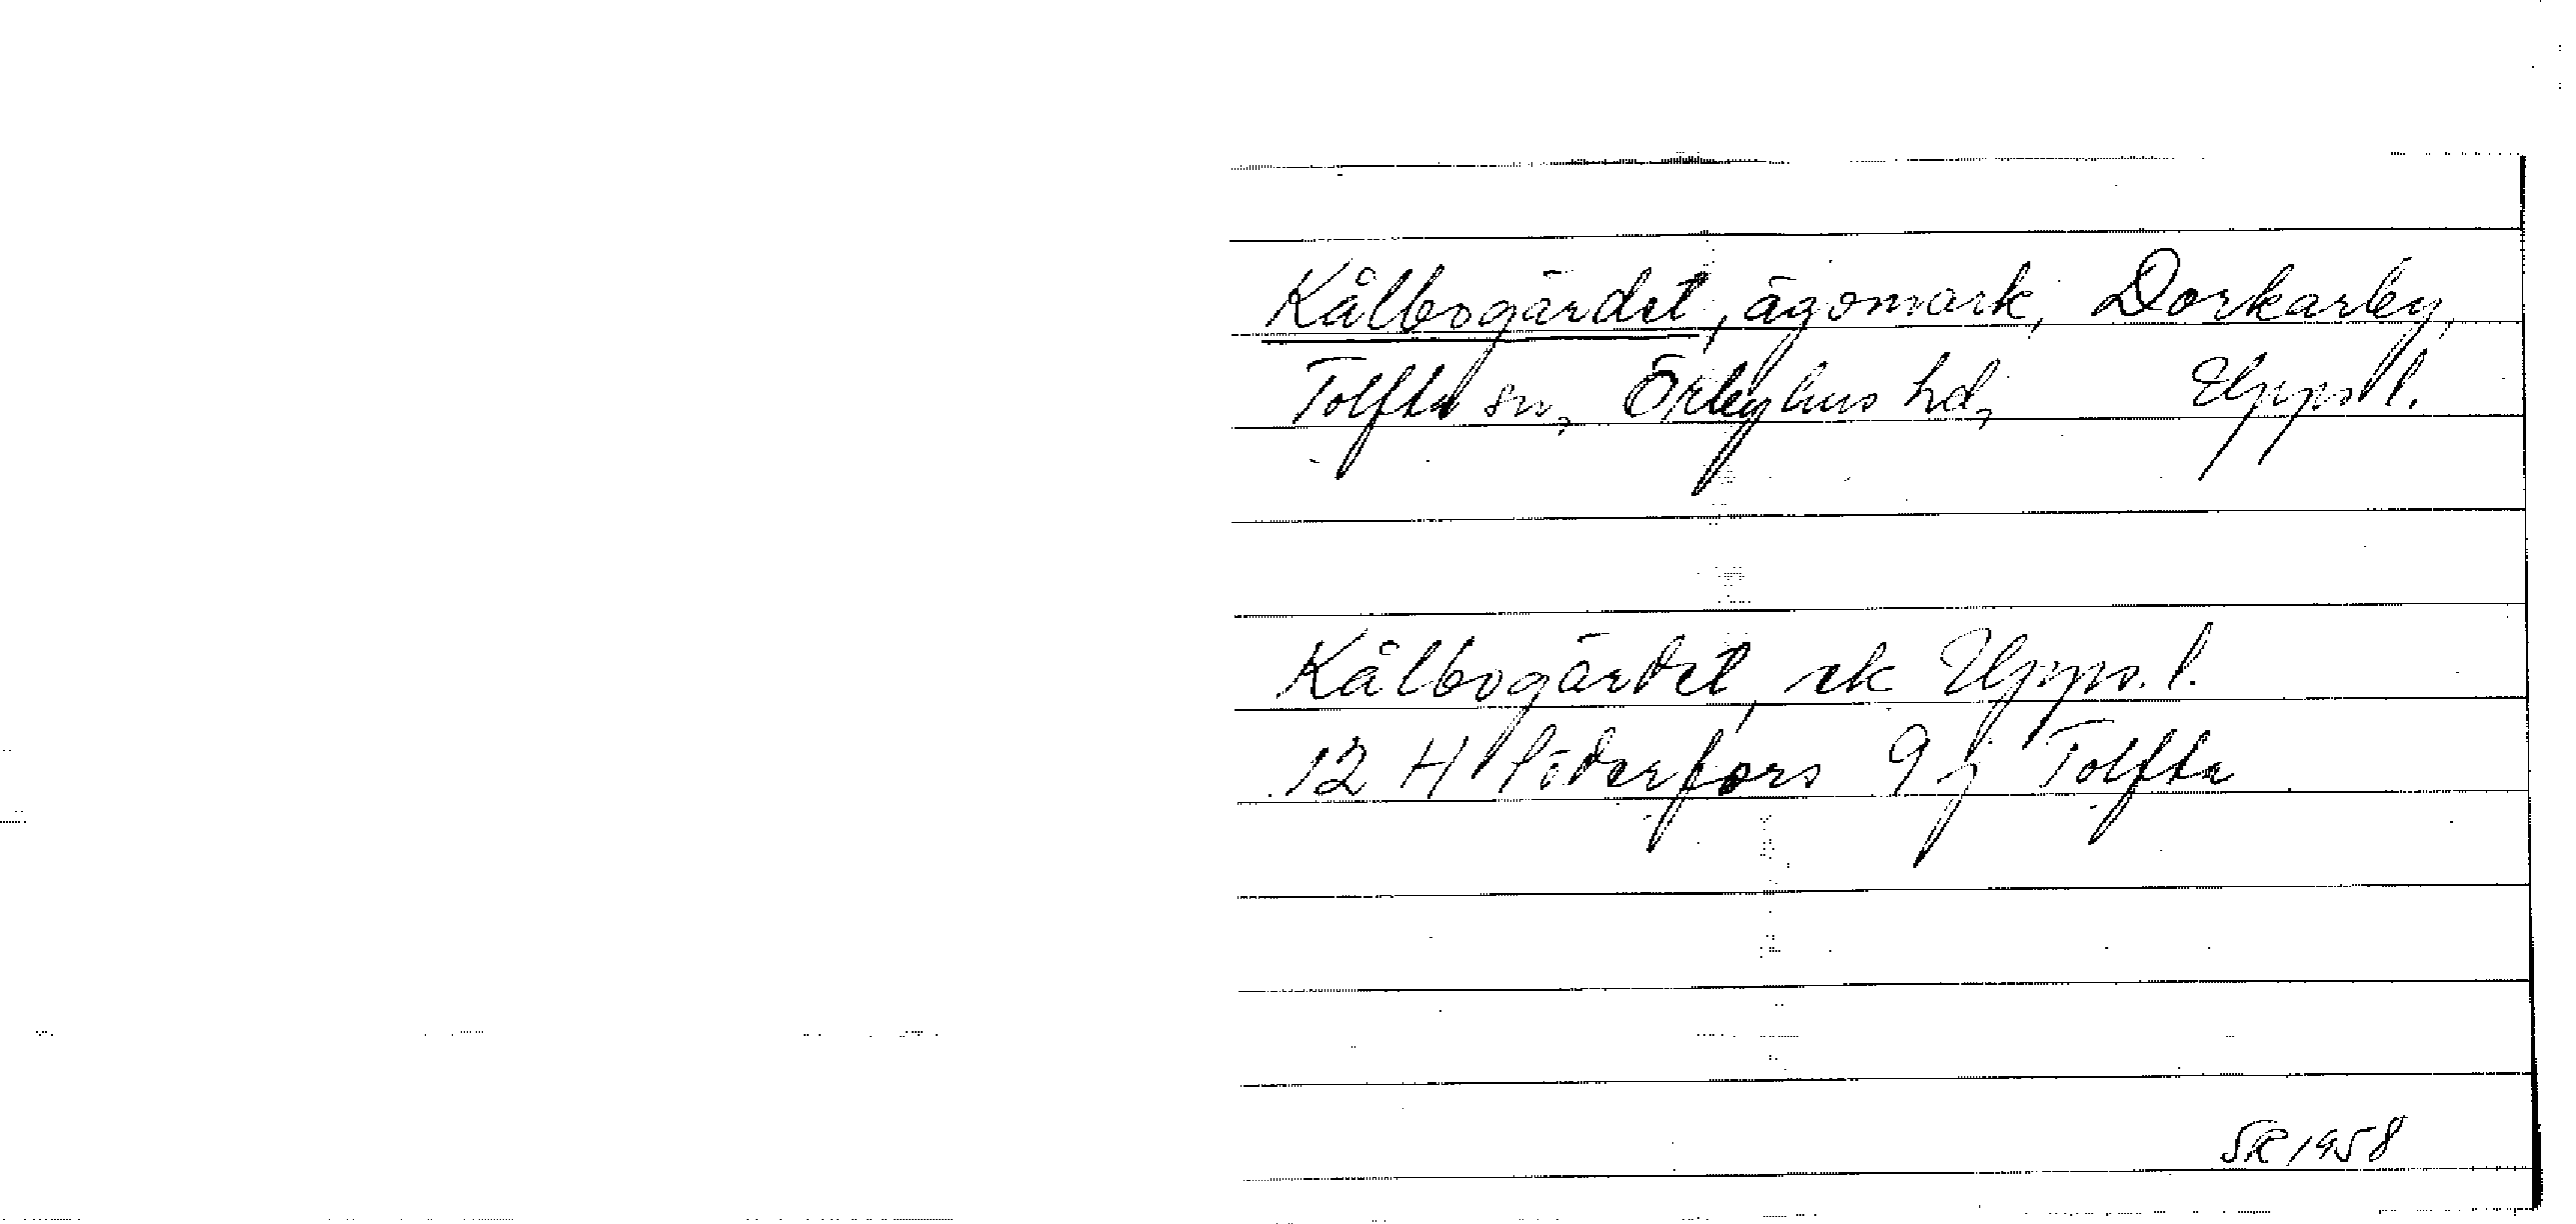 Kålbogärdet, ägomark, Dorkarby,
Tolfta sn, Örbyhus hd, Upps l.
Kålbogärdet, ek Upps. l.
12 H Söderfors 9 j Tolfta
SR 1958